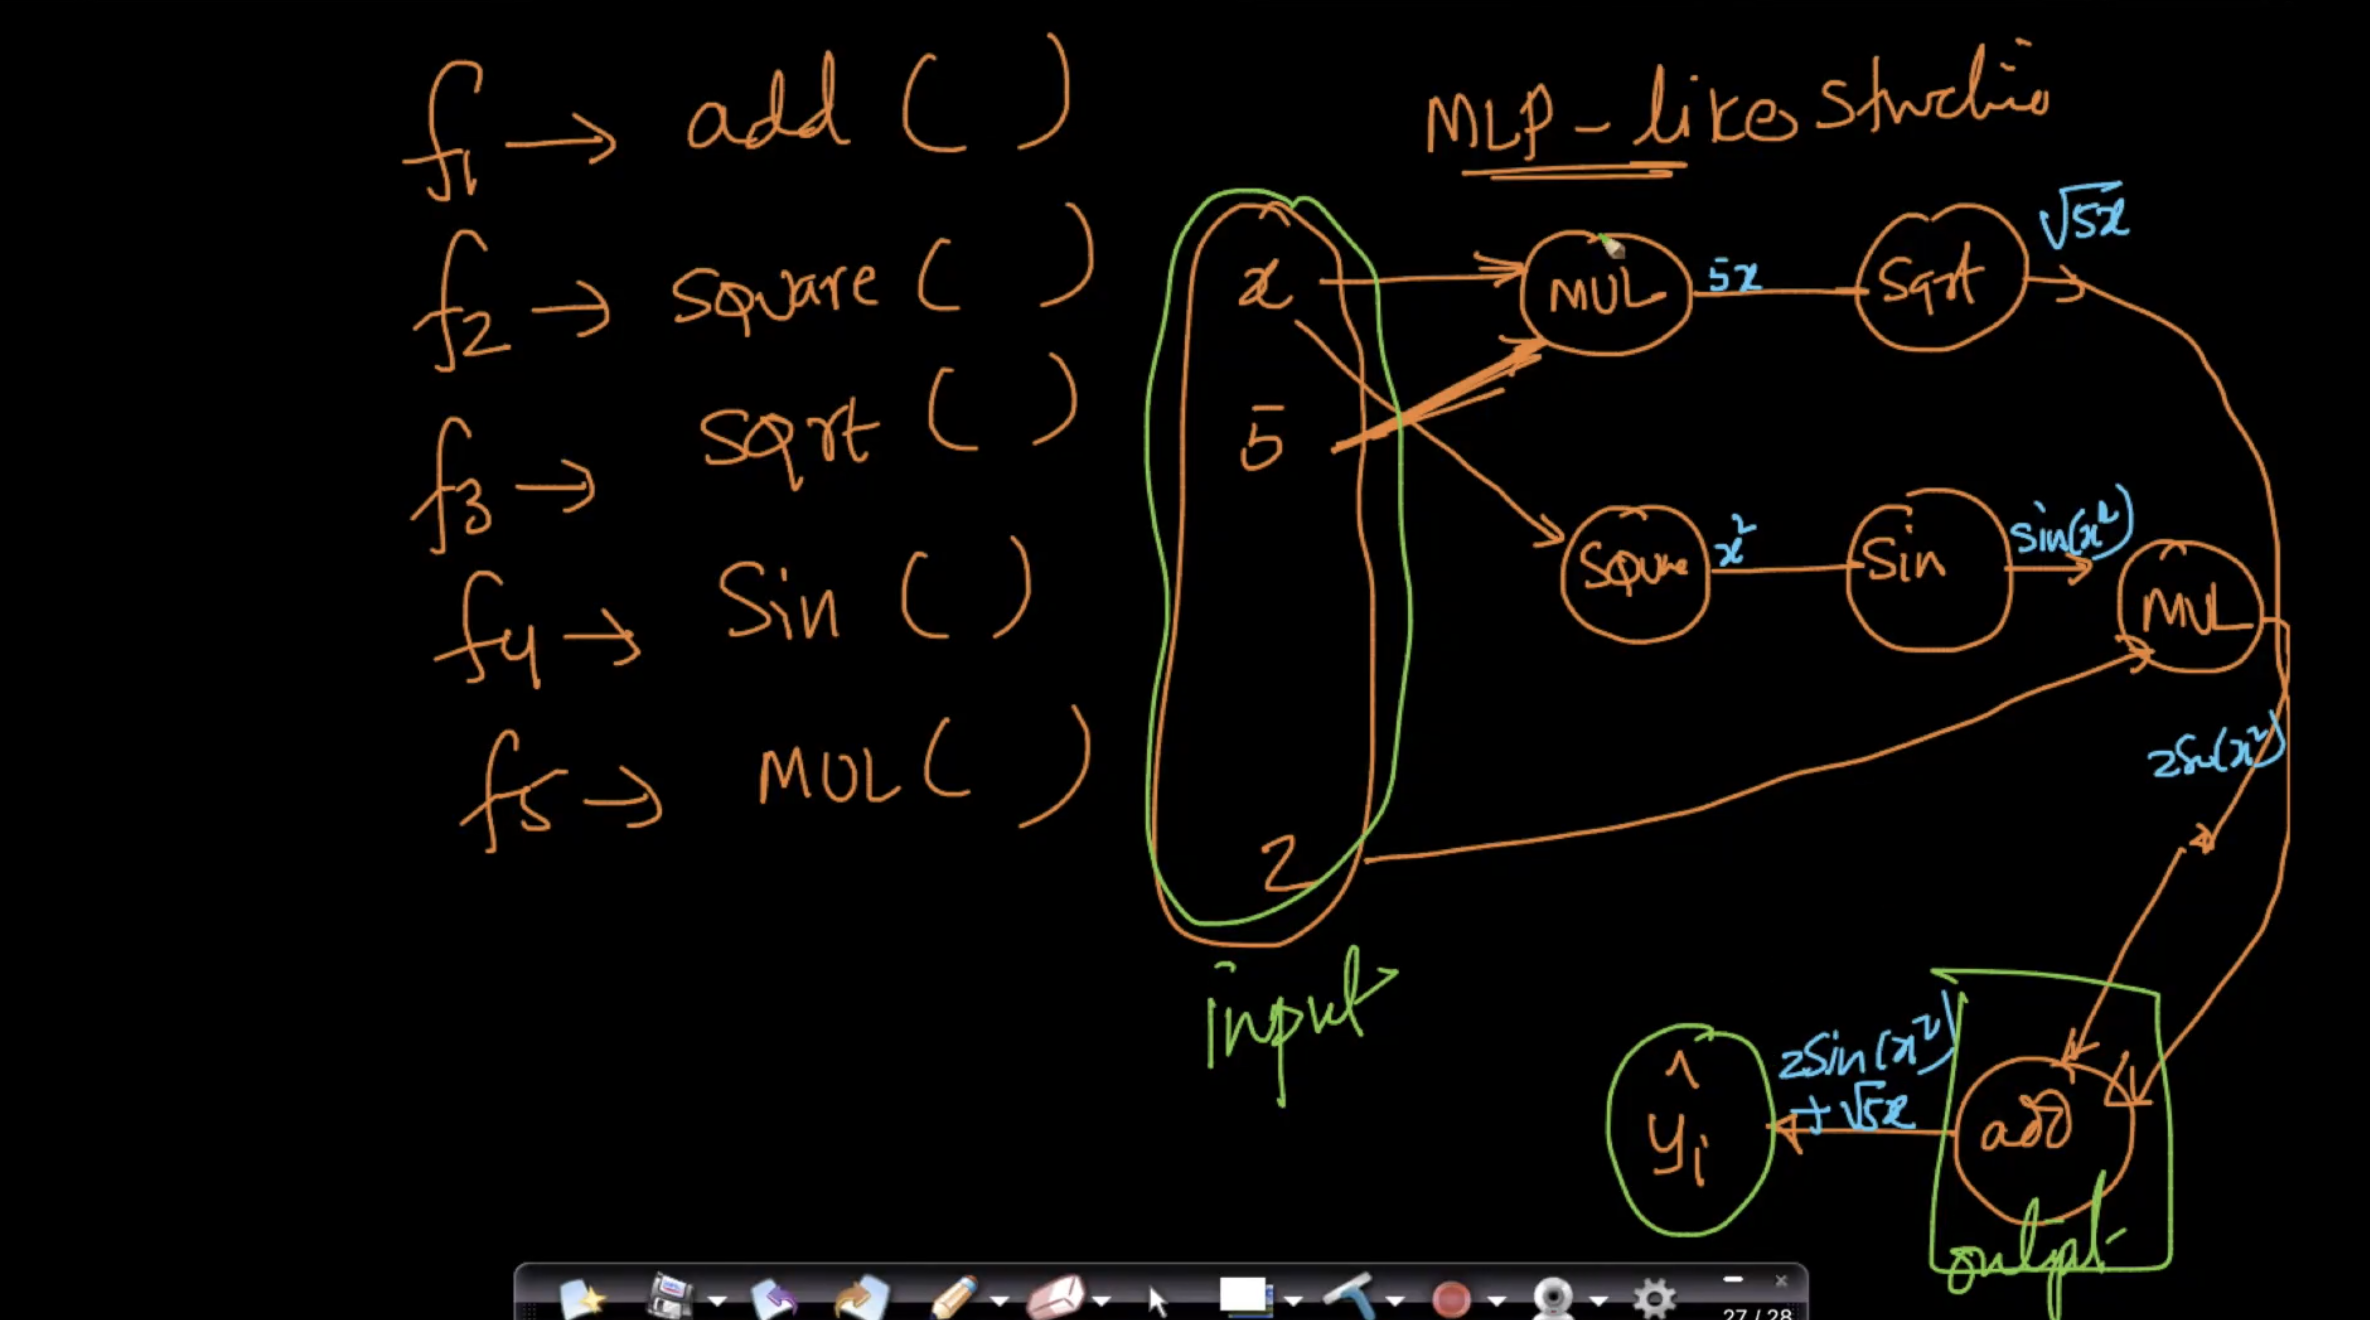 f1 → add ( )
f2 → square ( )
f3 → sqrt ( )
f4 → Sin ( )
f5 → MUL ( )
MLP - like
x
5
2
input
MUL
5x
Sqrt
√5x
Square
x²
Sin
Sin(x²)
MUL
2Sin(x²)
add
output
2Sin(x²)
+ √5x
ŷi
27 / 28